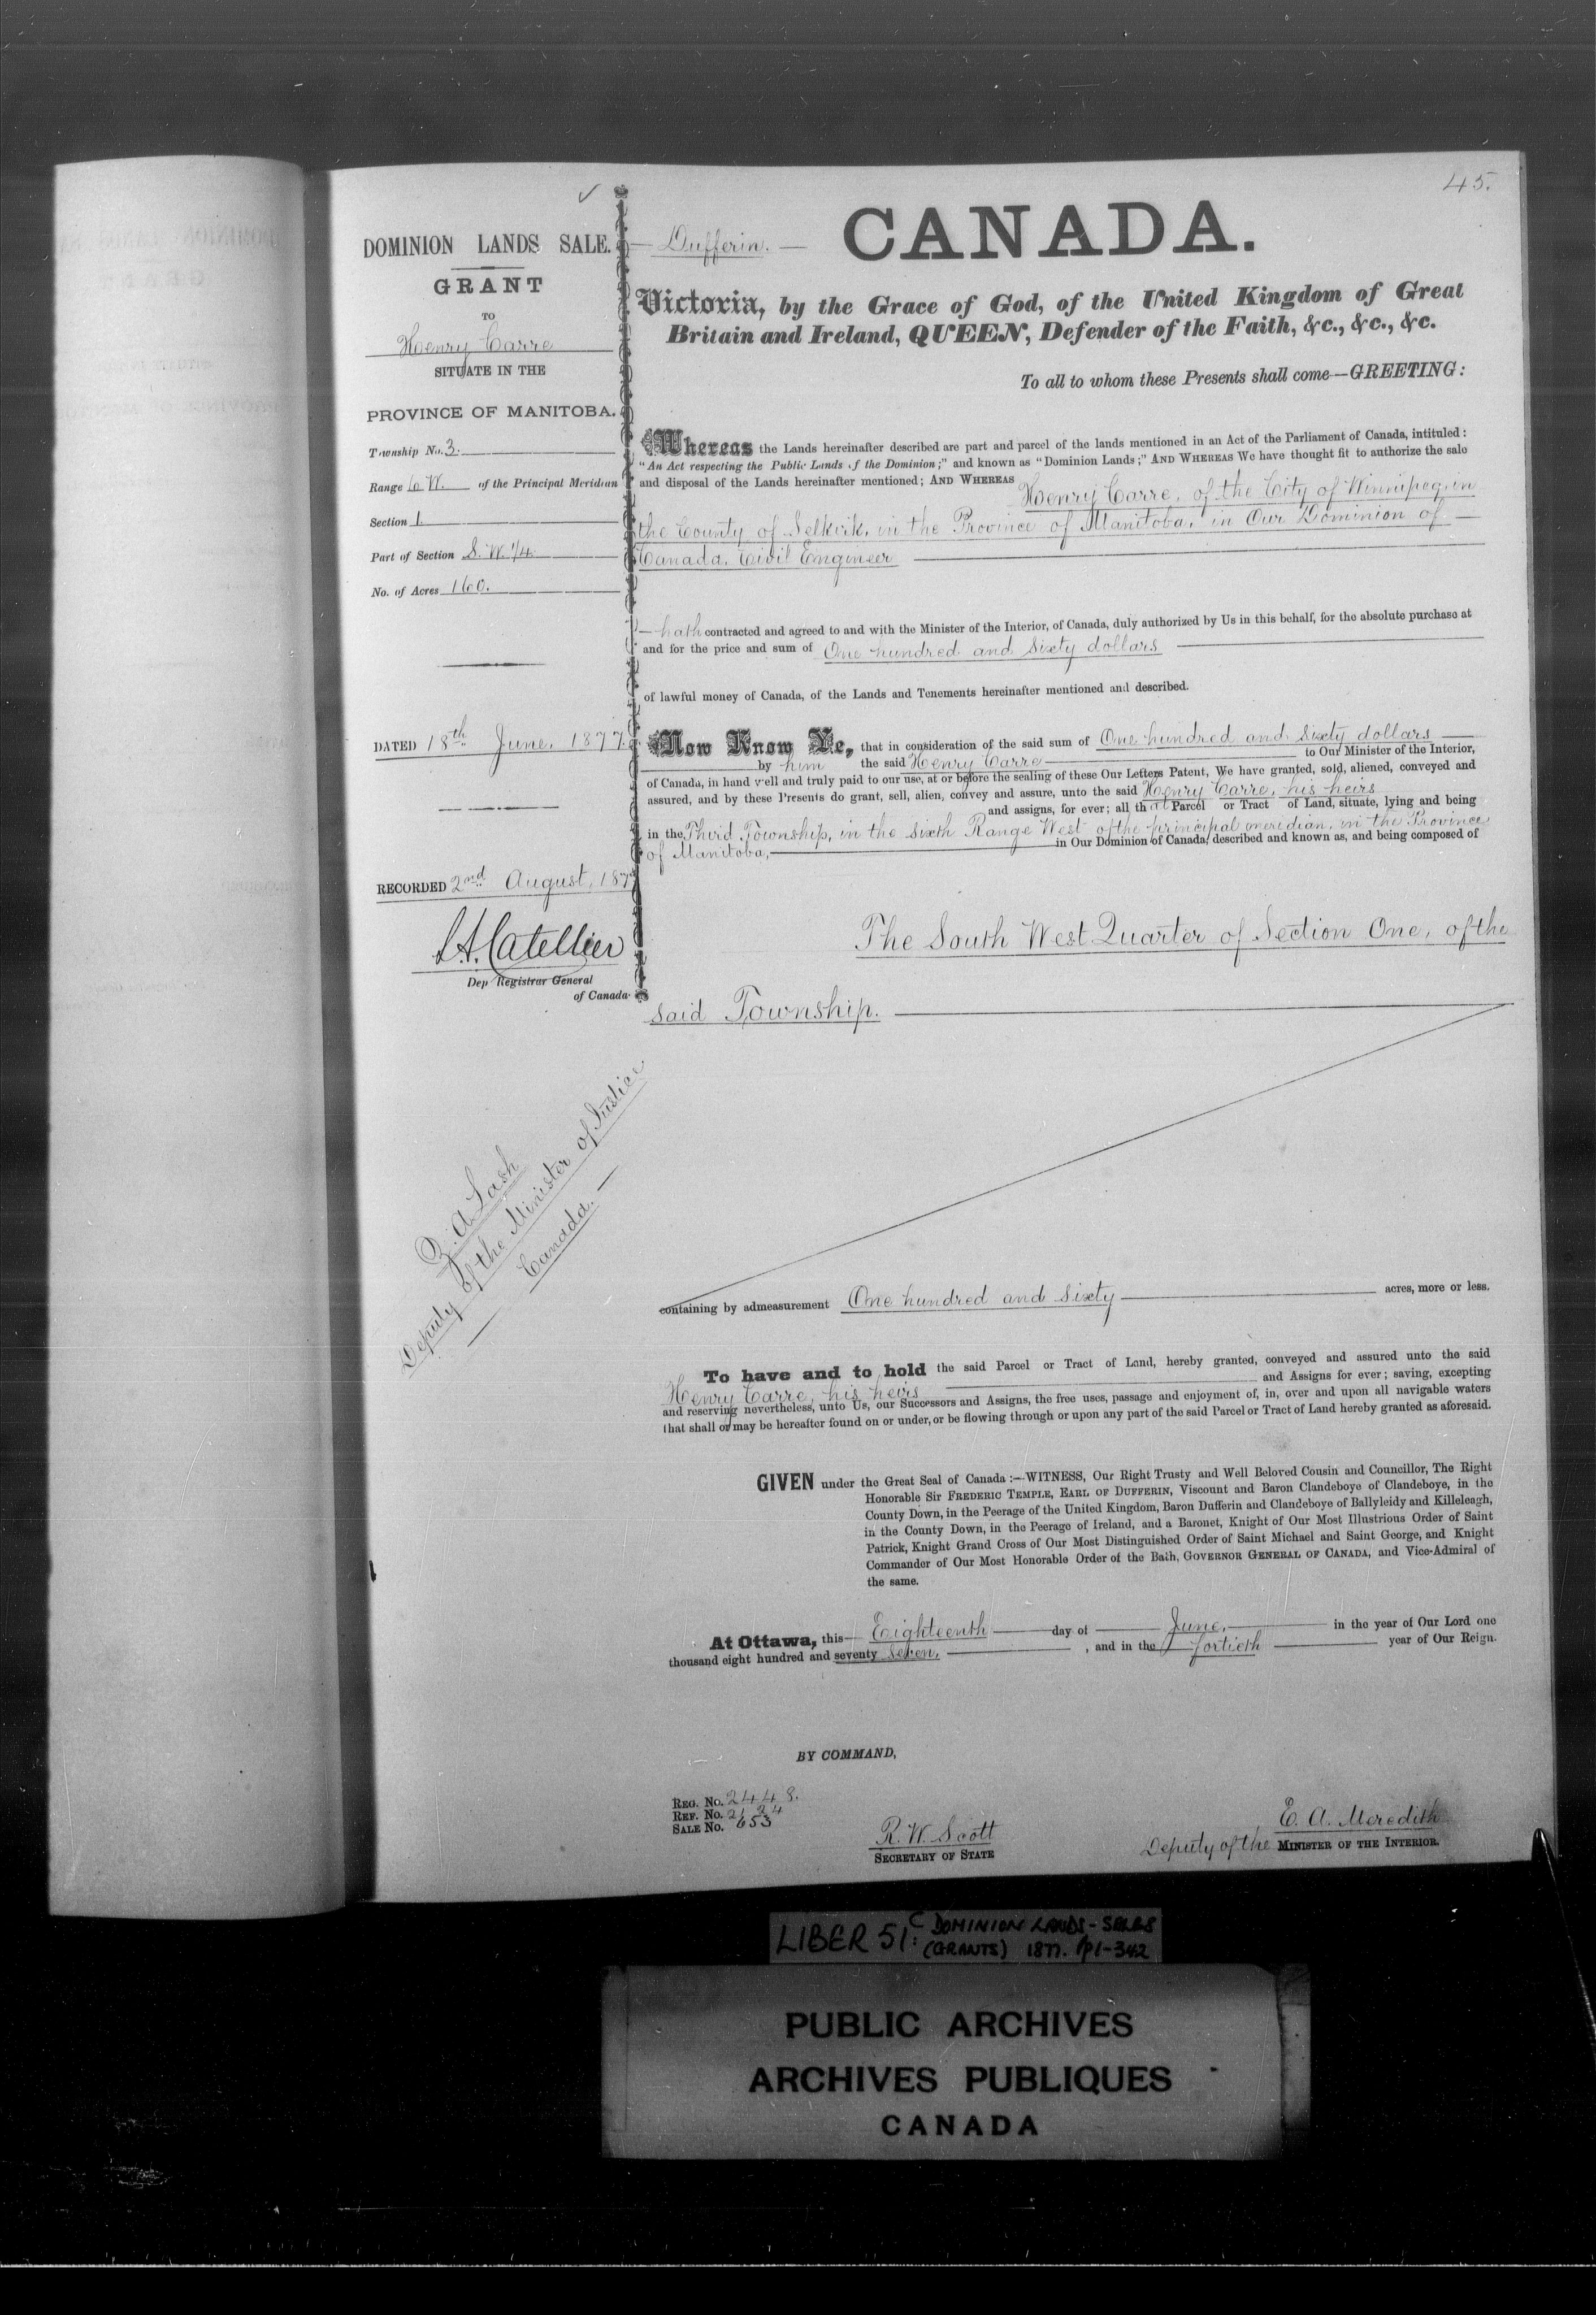 45.
✓
DOMINION LANDS SALE.
GRANT
TO
Henry Carre
SITUATE IN THE
PROVINCE OF MANITOBA.
Township No. 3.
Range 6 W. of the Principal Meridian
Section 1
Part of Section S. W. 1/4
No. of Acres 160.
DATED 18th June, 1877.
RECORDED 2nd August, 187
L.A. Catellier
Dep Registrar General
of Canada
Z. A. Lash
Deputy of the Minister of Justice
Canada.
— Dufferin. — CANADA.
Victoria, by the Grace of God, of the United Kingdom of Great
Britain and Ireland, QUEEN, Defender of the Faith, &c., &c., &c.
To all to whom these Presents shall come—GREETING:
Whereas the Lands hereinafter described are part and parcel of the lands mentioned in an Act of the Parliament of Canada, intituled:
"An Act respecting the Public Lands of the Dominion;" and known as "Dominion Lands;" AND WHEREAS We have thought fit to authorize the sale
and disposal of the Lands hereinafter mentioned; AND WHEREAS Henry Carre, of the City of Winnipeg, in
the County of Selkirk, in the Province of Manitoba, in Our Dominion of —
Canada. Civil Engineer
— hath contracted and agreed to and with the Minister of the Interior, of Canada, duly authorized by Us in this behalf, for the absolute purchase at
and for the price and sum of One hundred and Sixty dollars
of lawful money of Canada, of the Lands and Tenements hereinafter mentioned and described.
Now Know Ye, that in consideration of the said sum of One hundred and Sixty dollars
by him the said Henry Carre to Our Minister of the Interior,
of Canada, in hand well and truly paid to our use, at or before the sealing of these Our Letters Patent, We have granted, sold, aliened, conveyed and
assured, and by these Presents do grant, sell, alien, convey and assure, unto the said Henry Carre, his heirs
and assigns, for ever; all that Parcel or Tract of Land, situate, lying and being
in the Third Township, in the Sixth Range West of the principal meridian, in the Province
of Manitoba, in Our Dominion of Canada, described and known as, and being composed of
The South West Quarter of Section One, of the
said Township.
containing by admeasurement One hundred and Sixty acres, more or less.
To have and to hold the said Parcel or Tract of Land, hereby granted, conveyed and assured unto the said
Henry Carre, his heirs and Assigns for ever; saving, excepting
and reserving nevertheless, unto Us, our Successors and Assigns, the free uses, passage and enjoyment of, in, over and upon all navigable waters
that shall or may be hereafter found on or under, or be flowing through or upon any part of the said Parcel or Tract of Land hereby granted as aforesaid.
GIVEN under the Great Seal of Canada:—WITNESS, Our Right Trusty and Well Beloved Cousin and Councillor, The Right
Honorable Sir FREDERIC TEMPLE, EARL OF DUFFERIN, Viscount and Baron Clandeboye of Clandeboye, in the
County Down, in the Peerage of the United Kingdom, Baron Dufferin and Clandeboye of Ballyleidy and Killeleagh,
in the County Down, in the Peerage of Ireland, and a Baronet, Knight of Our Most Illustrious Order of Saint
Patrick, Knight Grand Cross of Our Most Distinguished Order of Saint Michael and Saint George, and Knight
Commander of Our Most Honorable Order of the Bath, GOVERNOR GENERAL OF CANADA, and Vice-Admiral of
the same.
At Ottawa, this Eighteenth day of June, in the year of Our Lord one
thousand eight hundred and seventy seven, , and in the fortieth year of Our Reign.
BY COMMAND,
REG. No. 2448.
REF. No. 2124
SALE No. 653
R. W. Scott
SECRETARY OF STATE
E. A. Meredith
Deputy of the MINISTER OF THE INTERIOR.
LIBER 51: C DOMINION LANDS - SALES
(GRANTS) 1877. pp1-342
PUBLIC ARCHIVES
ARCHIVES PUBLIQUES
CANADA